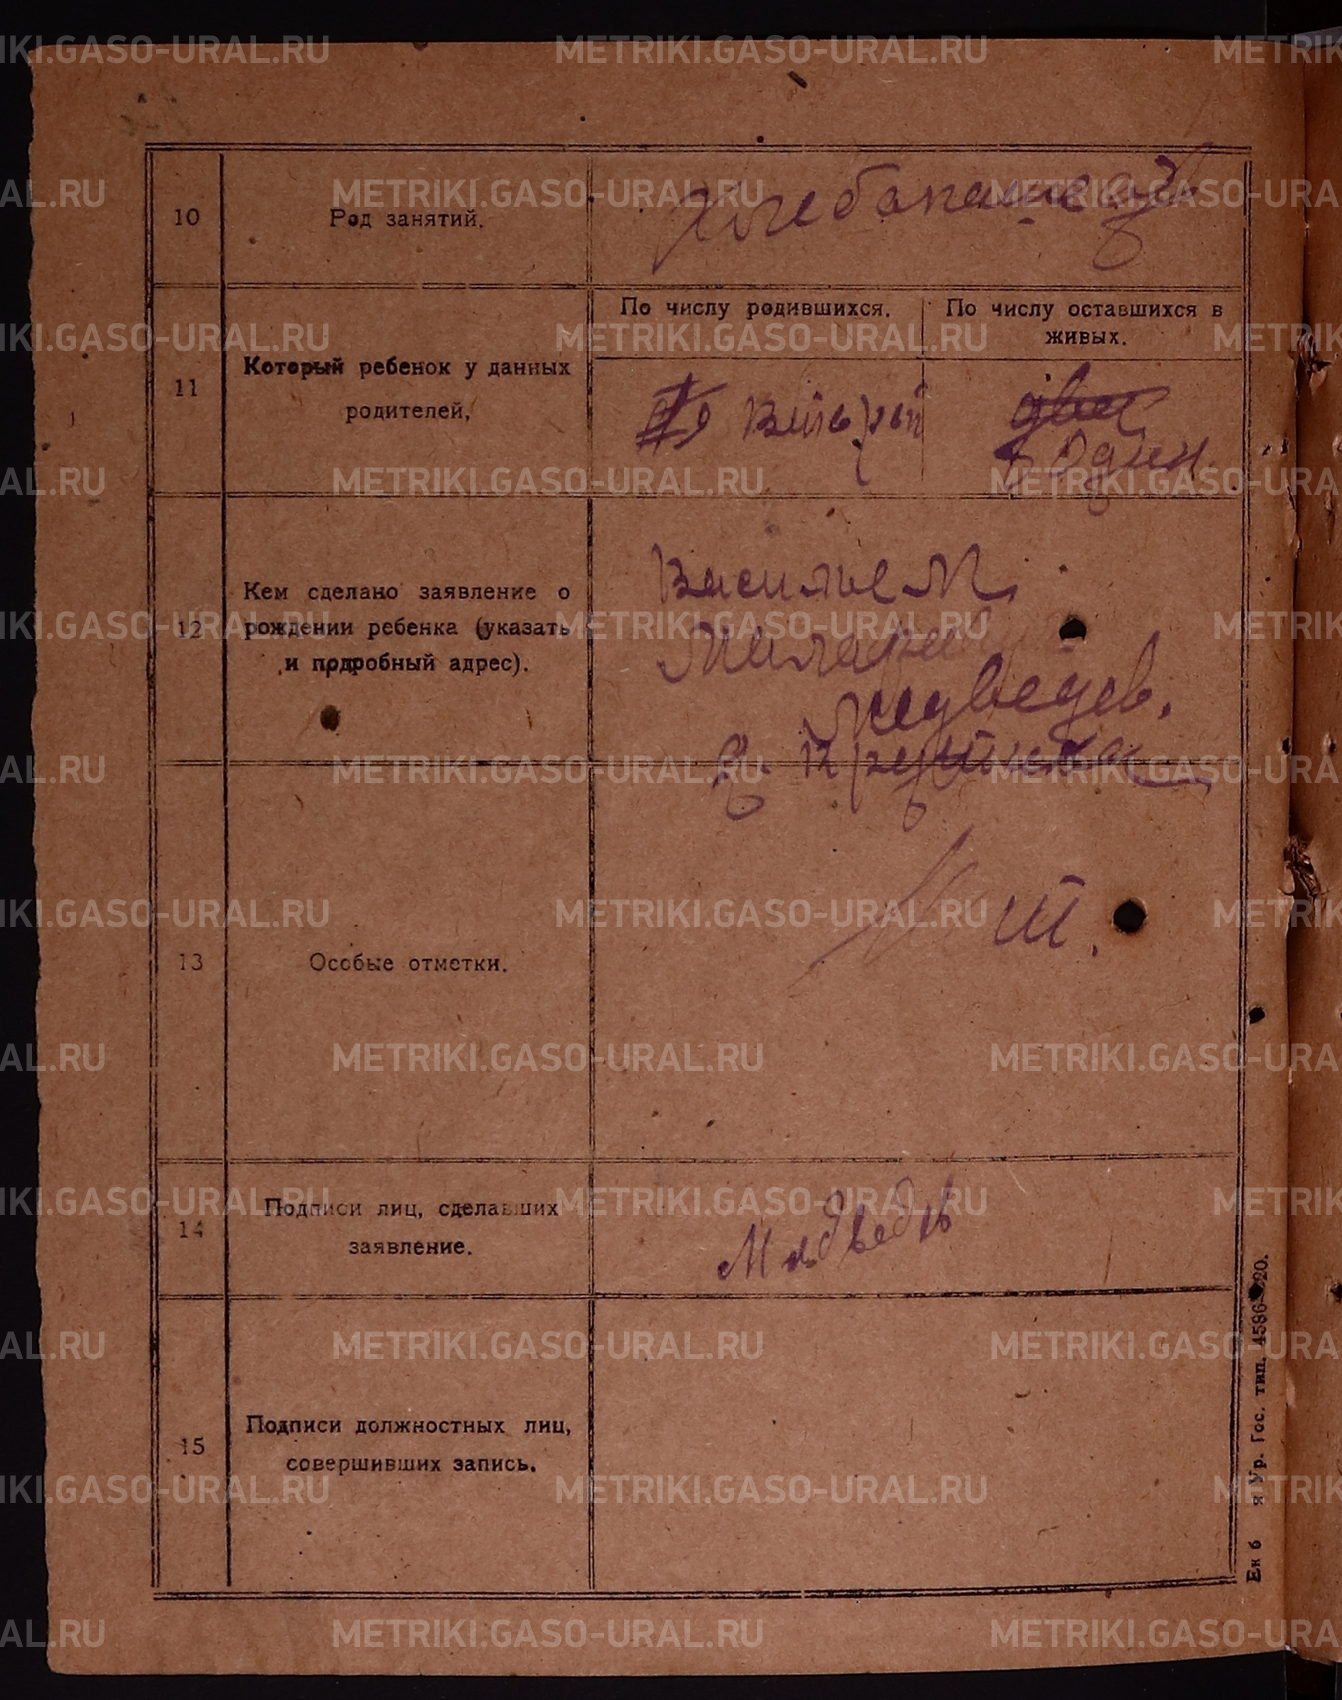 10 Род занятий. Хлебопашец
11 Который ребенок у данных
родителей,
По числу родившихся.
По числу оставшихся в
живых.
Один
12 Кем сделано заявление о
рождении ребенка (указать
и подробный адрес).
Василием
Медведев.
13 Особые отметки.
Нет.
14 Подписи лиц, сделавших
заявление.
Медведев
15 Подписи должностных лиц,
совершивших запись.
я Ур. Гос. тип. 4586—20.
METRIKI.GASO-URAL.RU